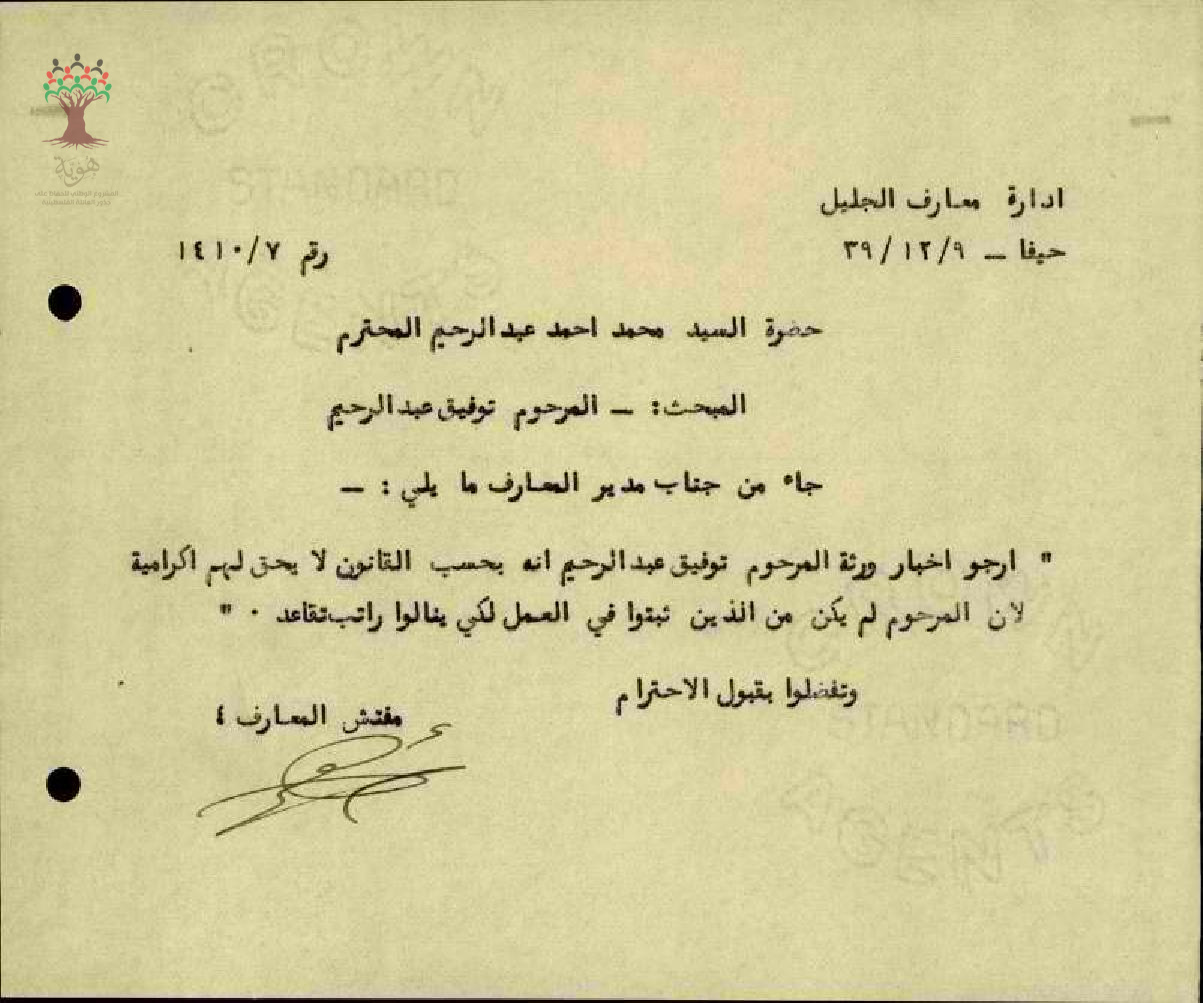 هوية
المشروع الوطني للحفاظ على
جذور العائلة الفلسطينية
ادارة معارف الجليل
حيفا ــ ٣٩/١٢/٩
رقم ١٤١٠/٧
حضرة السيد محمد احمد عبدالرحيم المحترم
المبحث: ــ المرحوم توفيق عبدالرحيم
جاء من جناب مدير المعارف ما يلي : ــ
" ارجو اخبار ورثة المرحوم توفيق عبدالرحيم انه بحسب القانون لا يحق لهم اكرامية
لان المرحوم لم يكن من الذين ثبتوا في العمل لكي ينالوا راتب تقاعد . "
وتفضلوا بقبول الاحترام
مفتش المعارف ؛